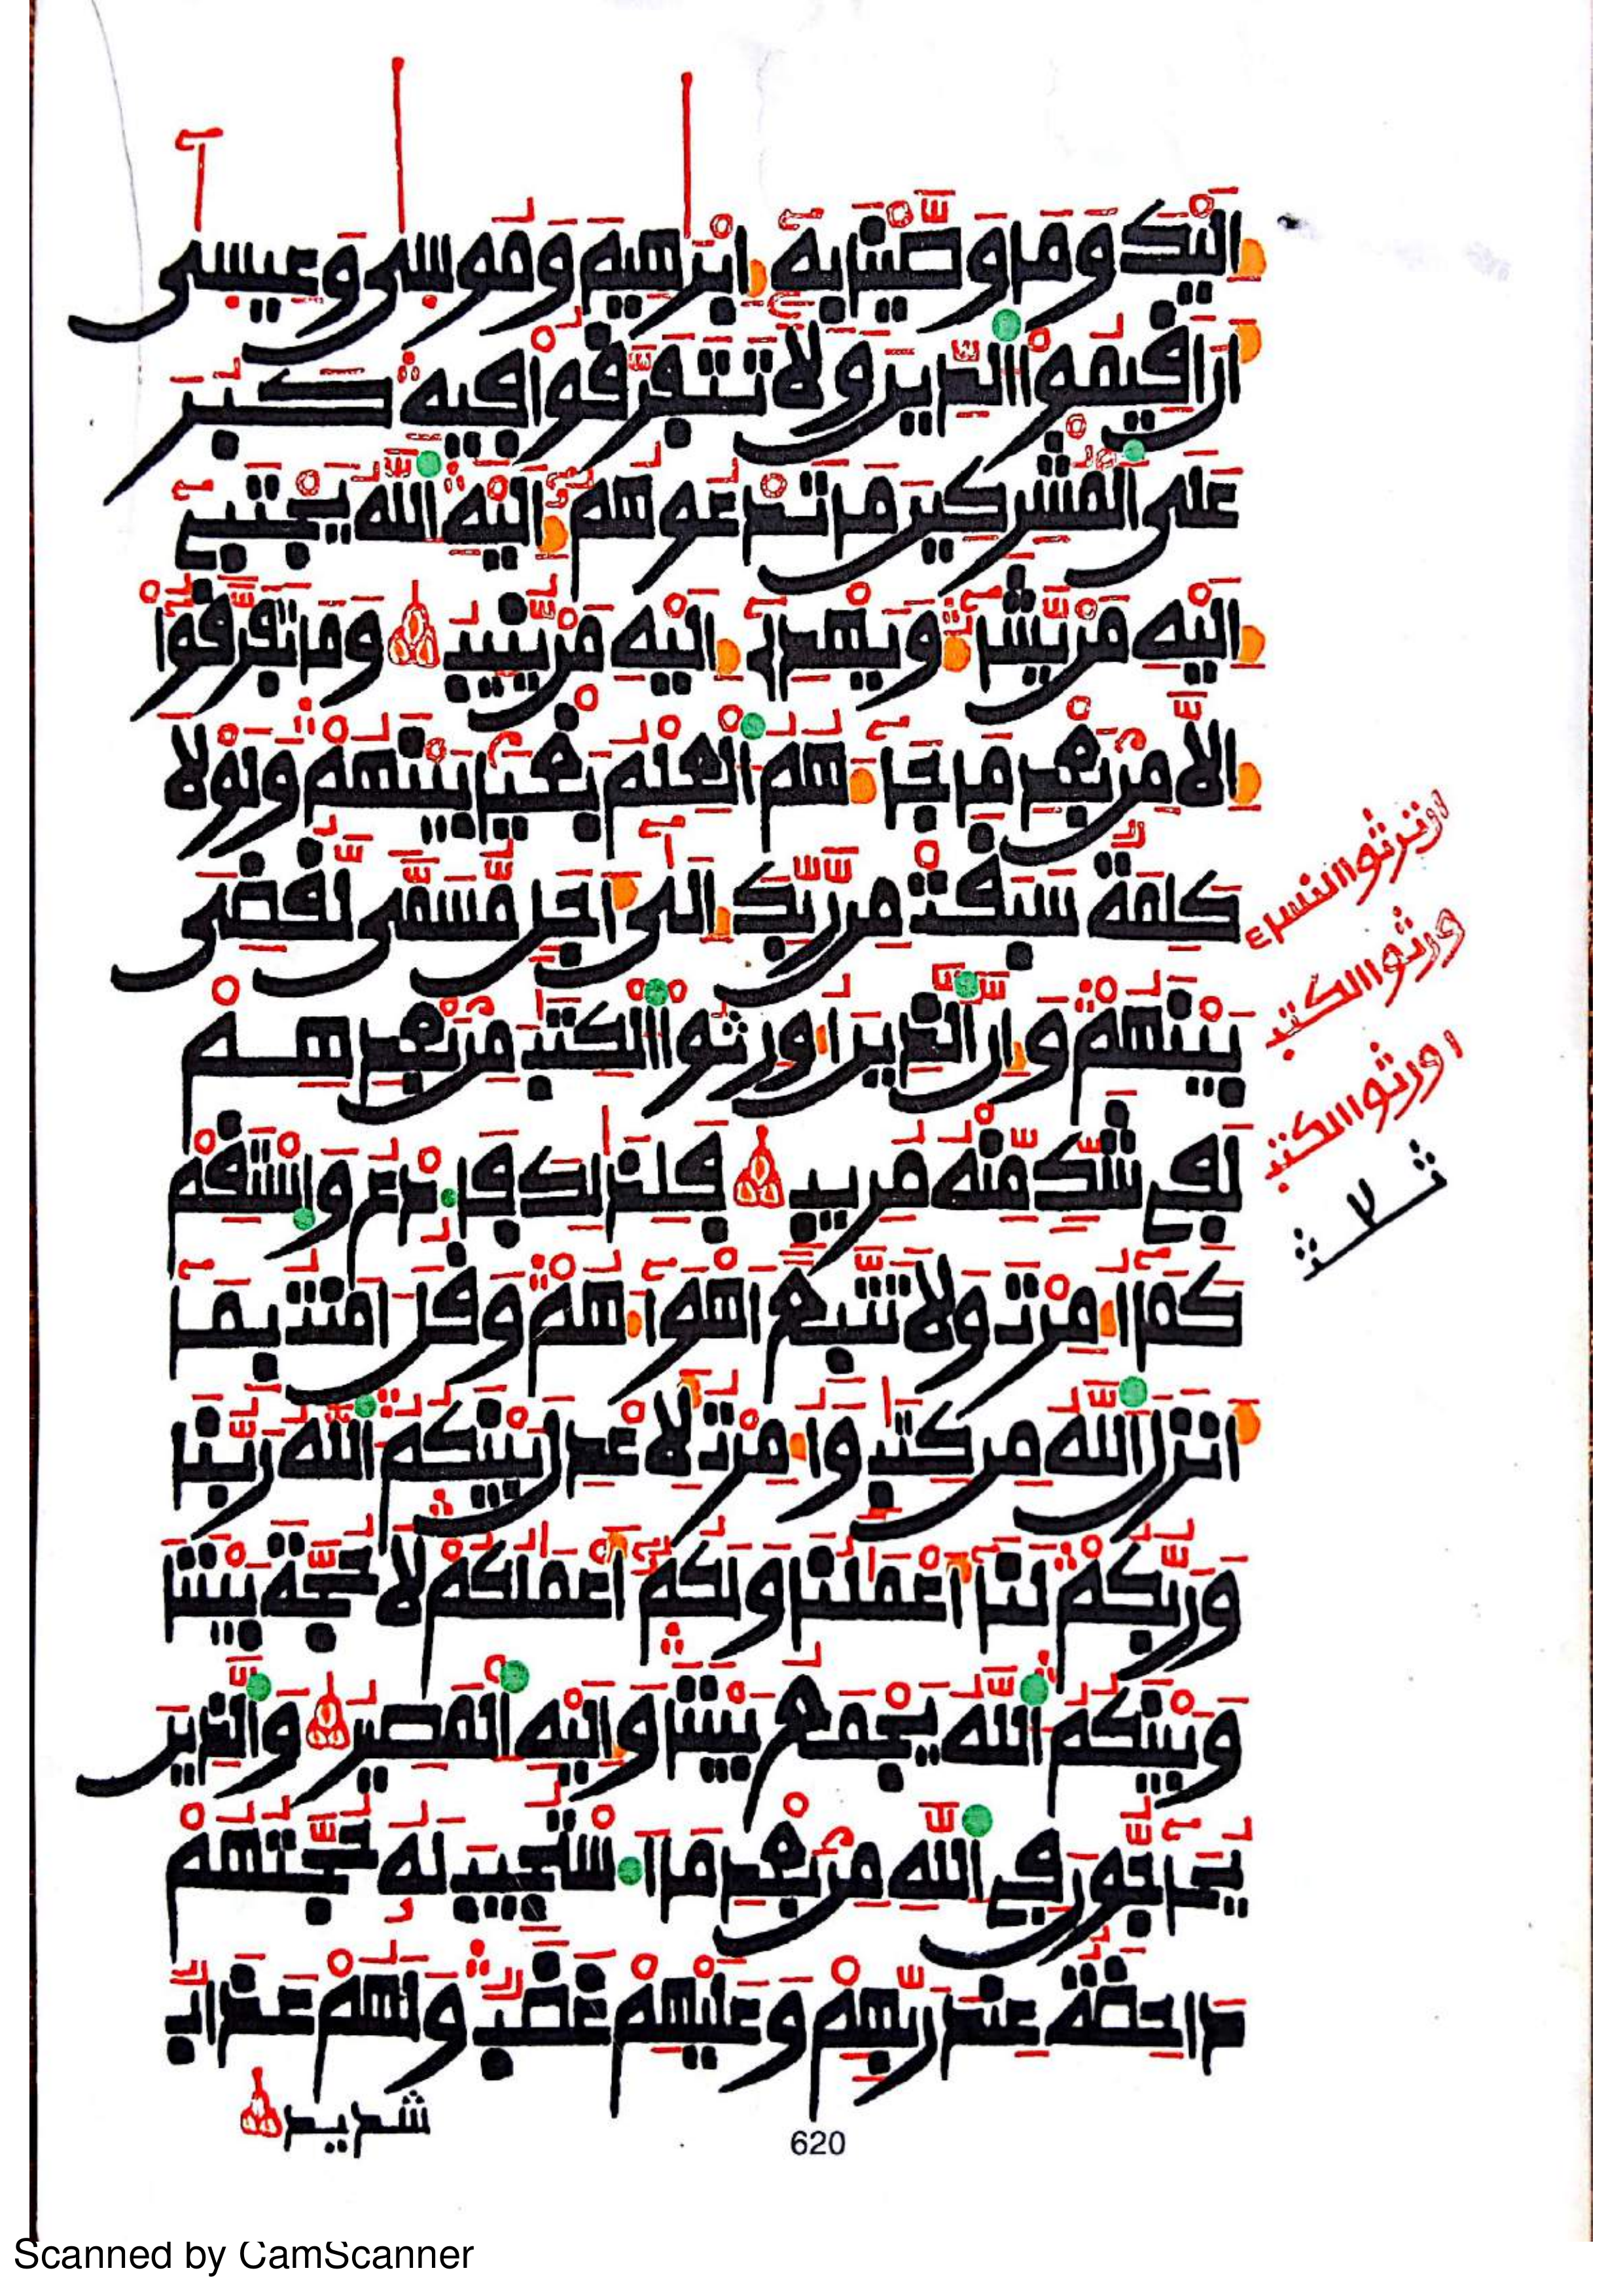 إِلَيْكَ وَمَا وَصَّيْنَا بِهِ إِبْرَٰهِيمَ وَمُوسَىٰ وَعِيسَىٰ
أَنْ أَقِيمُوا الدِّينَ وَلَا تَتَفَرَّقُوا فِيهِ كَبُرَ
عَلَى الْمُشْرِكِينَ مَا تَدْعُوهُمُ إِلَيْهِ اللَّهُ يَجْتَبِي
إِلَيْهِ مَنْ يَشَاءُ وَيَهْدِي إِلَيْهِ مَنْ يُنِيبُ وَمَا تَفَرَّقُوا
إِلَّا مِنْ بَعْدِ مَا جَاءَهُمُ الْعِلْمُ بَغْيًا بَيْنَهُمْ وَلَوْلَا
كَلِمَةٌ سَبَقَتْ مِنْ رَبِّكَ إِلَىٰ أَجَلٍ مُسَمًّى لَقُضِيَ
بَيْنَهُمْ وَإِنَّ الَّذِينَ أُورِثُوا الْكِتَٰبَ مِنْ بَعْدِهِمْ
لَفِي شَكٍّ مِنْهُ مُرِيبٍ فَلِذَٰلِكَ فَادْعُ وَاسْتَقِمْ
كَمَا أُمِرْتَ وَلَا تَتَّبِعْ أَهْوَاءَهُمْ وَقُلْ ءَامَنْتُ بِمَا
أَنْزَلَ اللَّهُ مِنْ كِتَٰبٍ وَأُمِرْتُ لِأَعْدِلَ بَيْنَكُمُ اللَّهُ رَبُّنَا
وَرَبُّكُمْ لَنَا أَعْمَٰلُنَا وَلَكُمُ أَعْمَٰلُكُمْ لَا حُجَّةَ بَيْنَنَا
وَبَيْنَكُمُ اللَّهُ يَجْمَعُ بَيْنَنَا وَإِلَيْهِ الْمَصِيرُ وَالَّذِينَ
يُحَاجُّونَ فِي اللَّهِ مِنْ بَعْدِ مَا اسْتُجِيبَ لَهُ حُجَّتُهُمْ
دَاحِضَةٌ عِنْدَ رَبِّهِمْ وَعَلَيْهِمْ غَضَبٌ وَلَهُمْ عَذَابٌ
شديد
ورثوا الكتب
اورثوا الكتب
620
Scanned by CamScanner